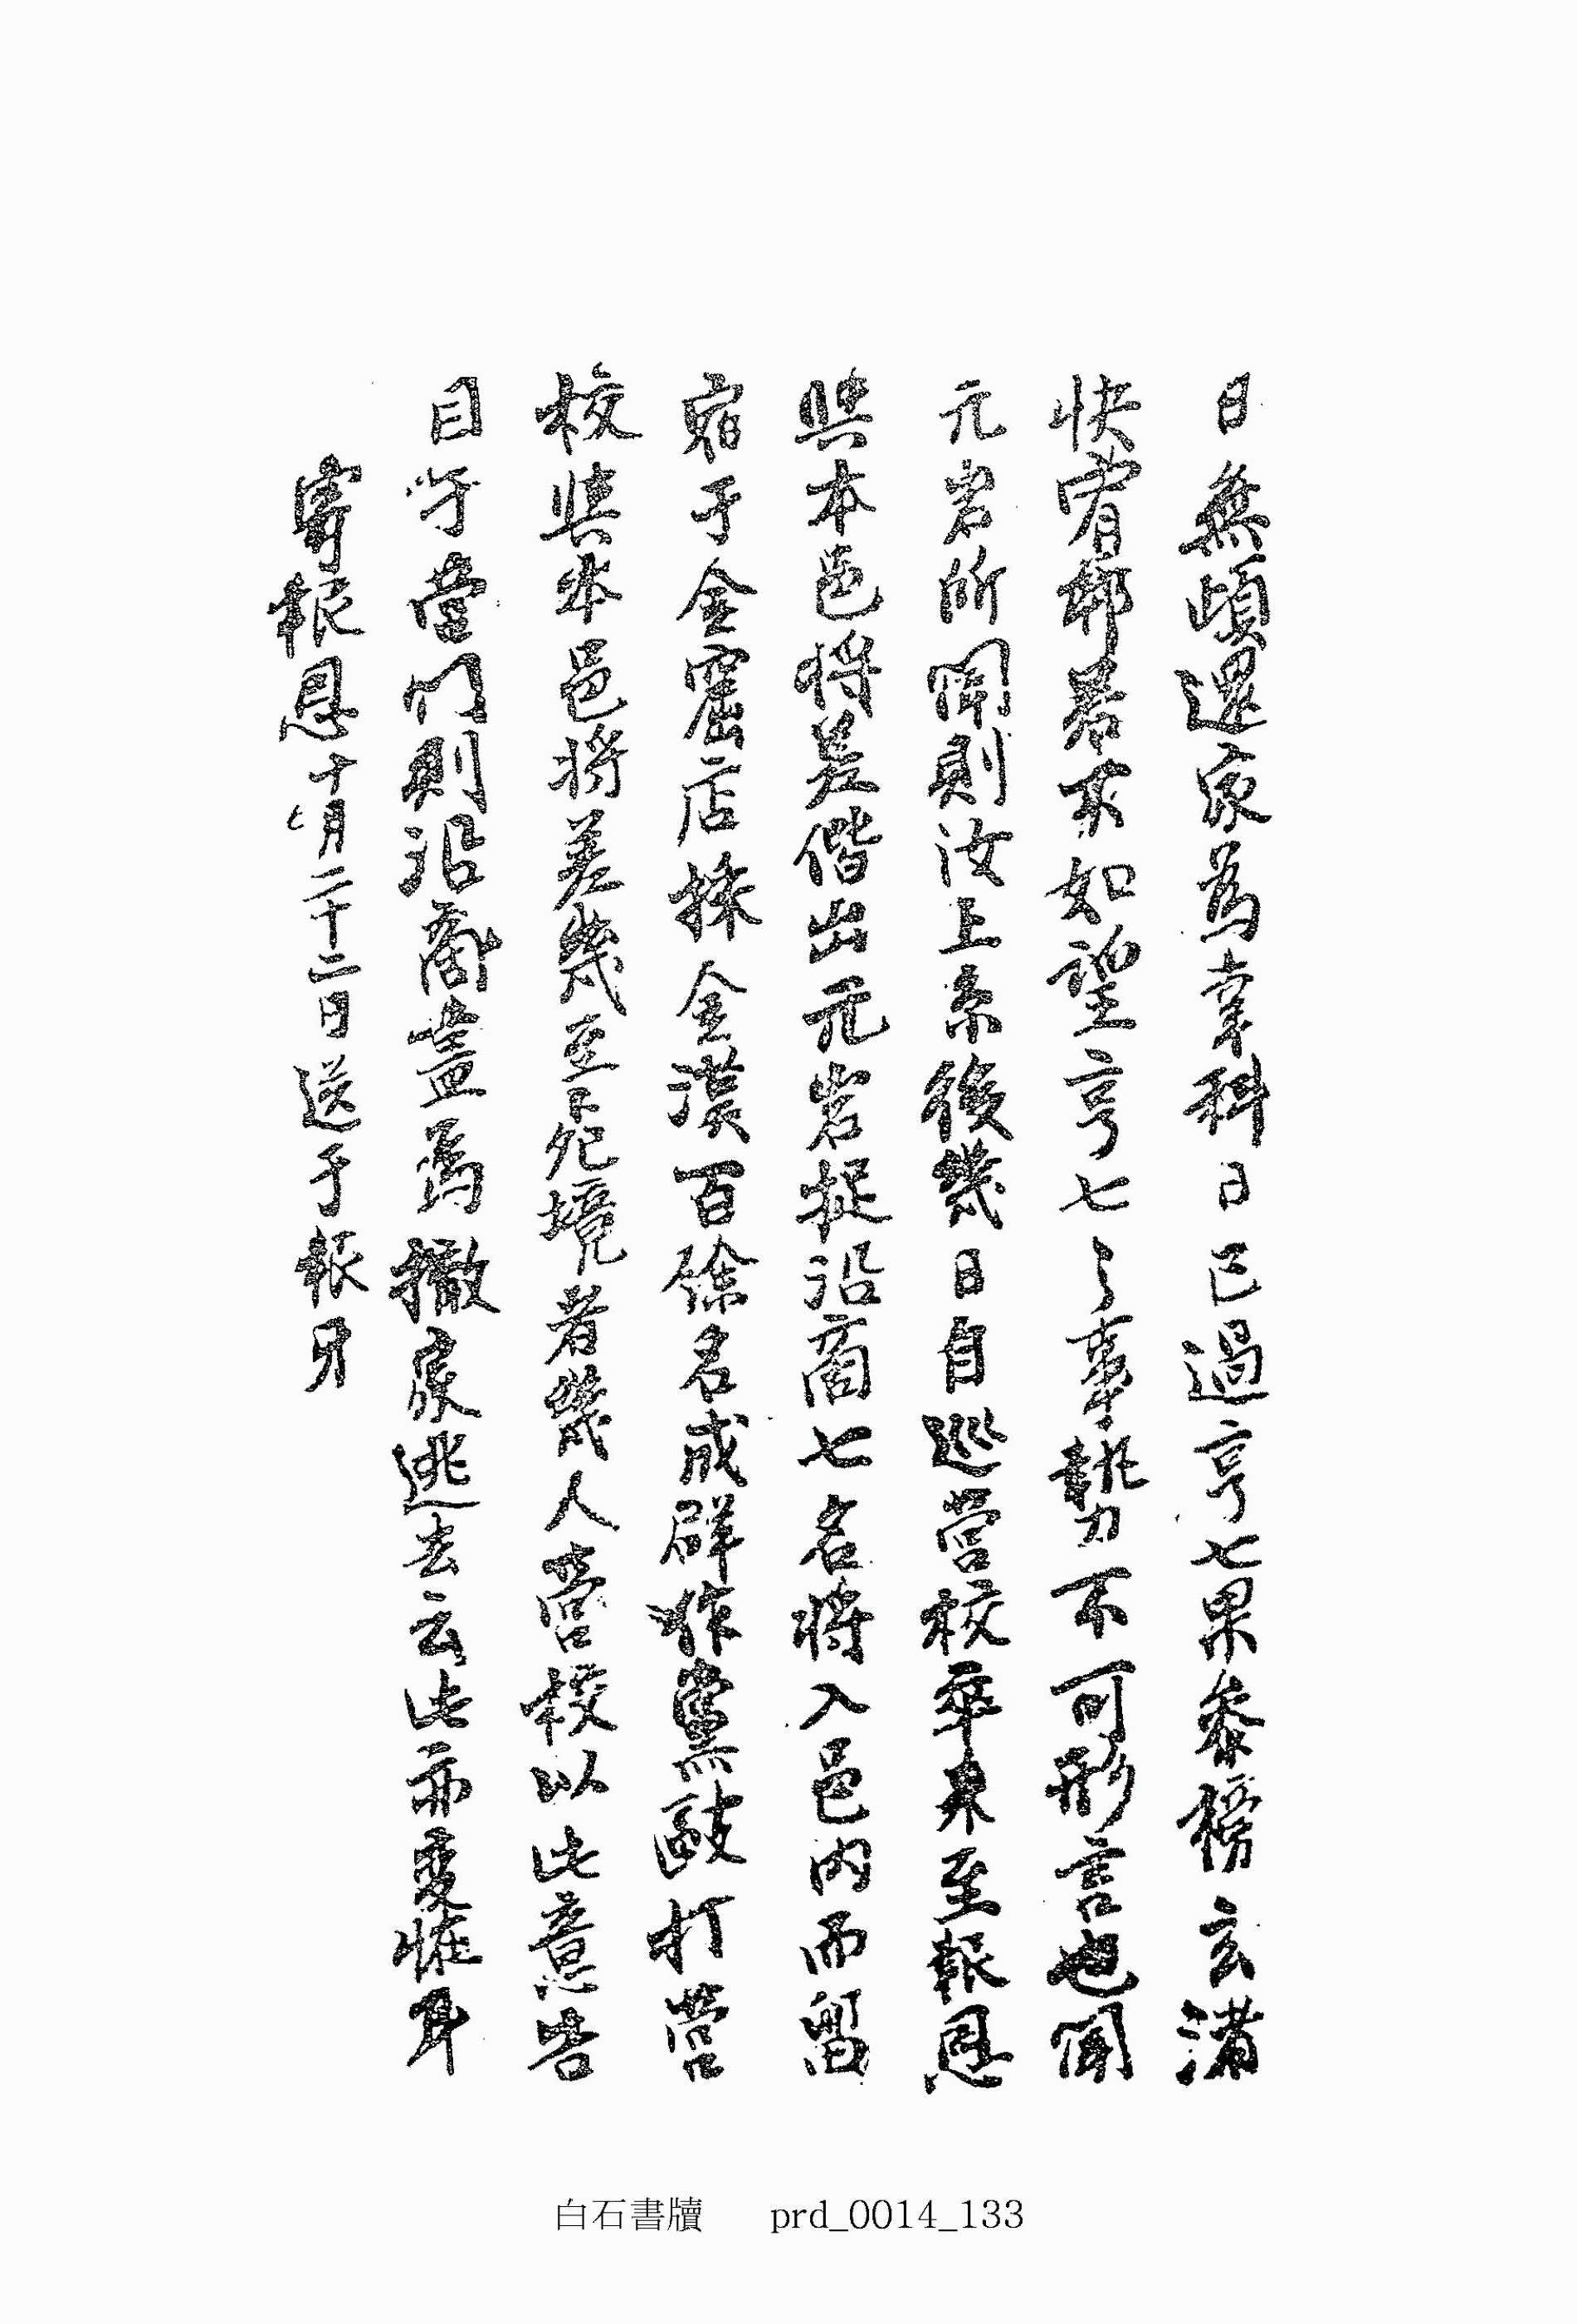 日無頉還家爲幸科日已過亨七果參榜玄潇
快宥耶若不如望亨七之事勢不可形言也聞
元岩所聞則汝上京後幾日自巡營校卒來至報恩
與本邑將差偕出元岩捉沿商七名將入邑內而留
宿于金窟店採金漢百餘名成群作黨敺打營
校與本邑將差幾至死境者幾人營校以此意告
目于營門則沿商盡爲撤家逃去云此亦變怪耳
寄報恩 十月二十二日送于報牙
白石書牘 prd_0014_133